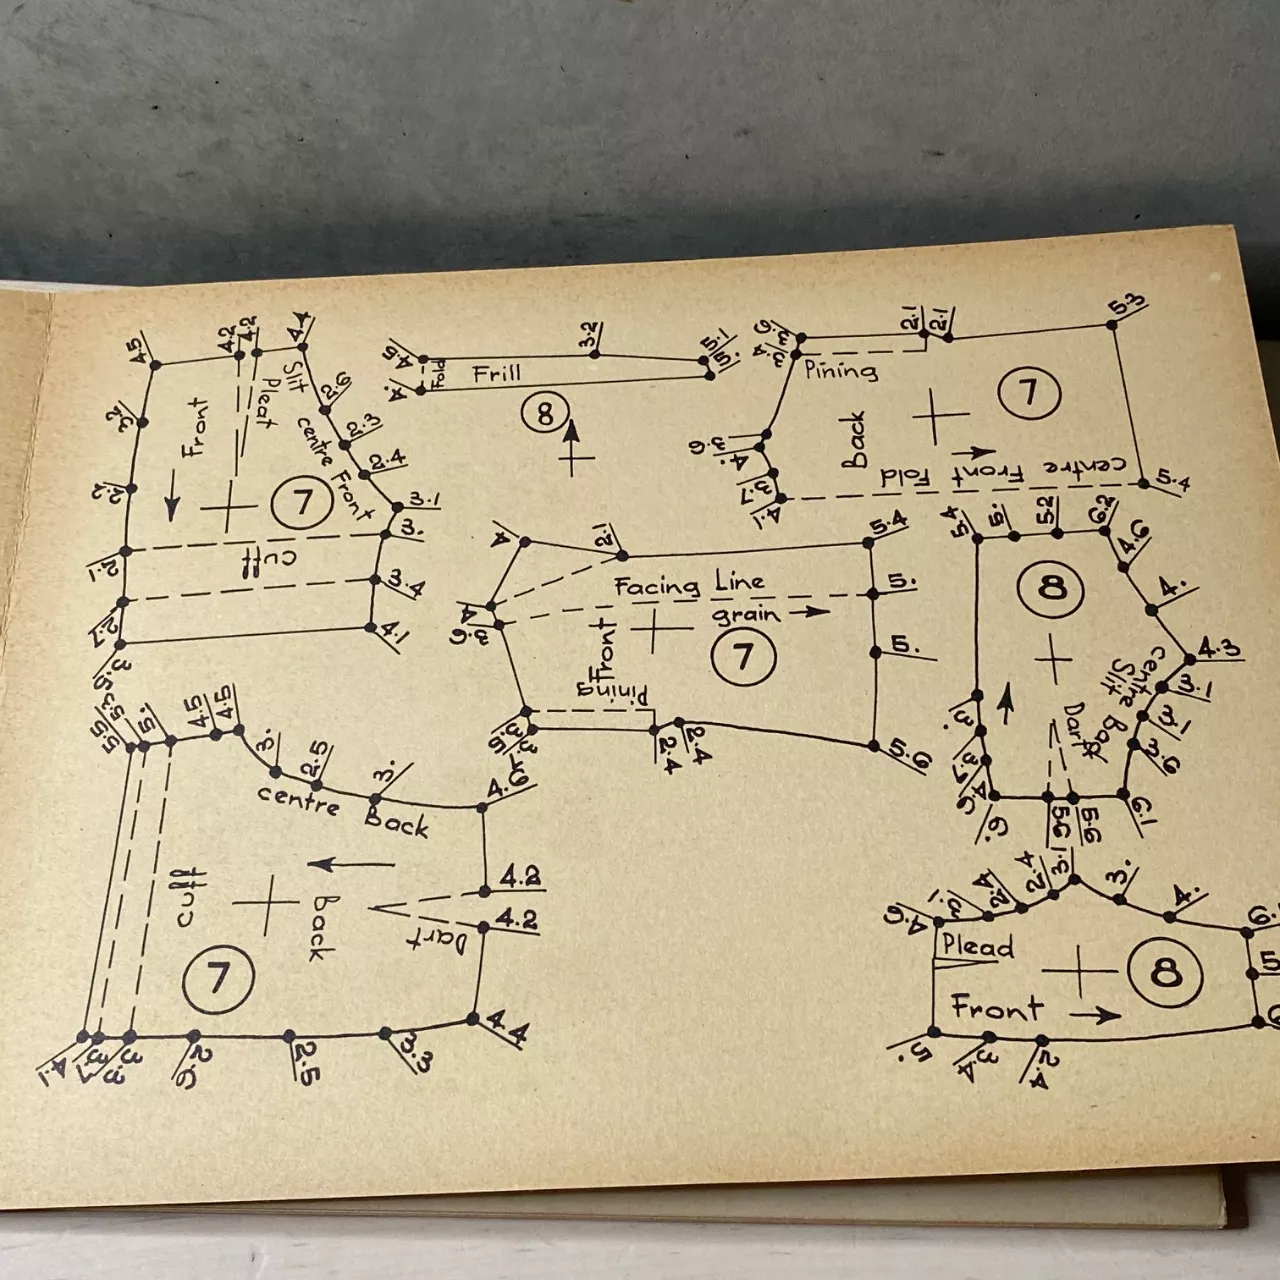 4.5
4.2
4.2
4.4
Slit
Pleat
Front
2.6
2.3
centre Front
2.4
3.1
3.
7
2.2
2.1
Cuff
3.4
2.7
4.1
4.5
Fold
Frill
3.2
5.1
5.
4.
8
2.1
2.1
5.3
Pining
7
Back
3.6
4.
3.7
4.1
centre Front Fold
5.4
4
2.1
5.4
Facing Line
5.
grain
4
3.6
Front
7
5.
Pining
3.5
2.4
2.4
5.6
5.4
5.
5.2
6.2
4.6
8
4.
4.3
centre Back
Slit
3.1
3.1
3.6
Dart
3.
6.
5.6
5.6
6.1
5.5
5.5
5.
4.5
4.5
3.
2.5
3.
centre Back
4.6
4.2
cuff
Back
4.2
Dart
7
4.4
4.1
3.7
3.3
2.6
2.5
3.3
4.6
3.1
2.4
2.4
3.1
3.
4.
Plead
8
Front
5.
3.4
2.4